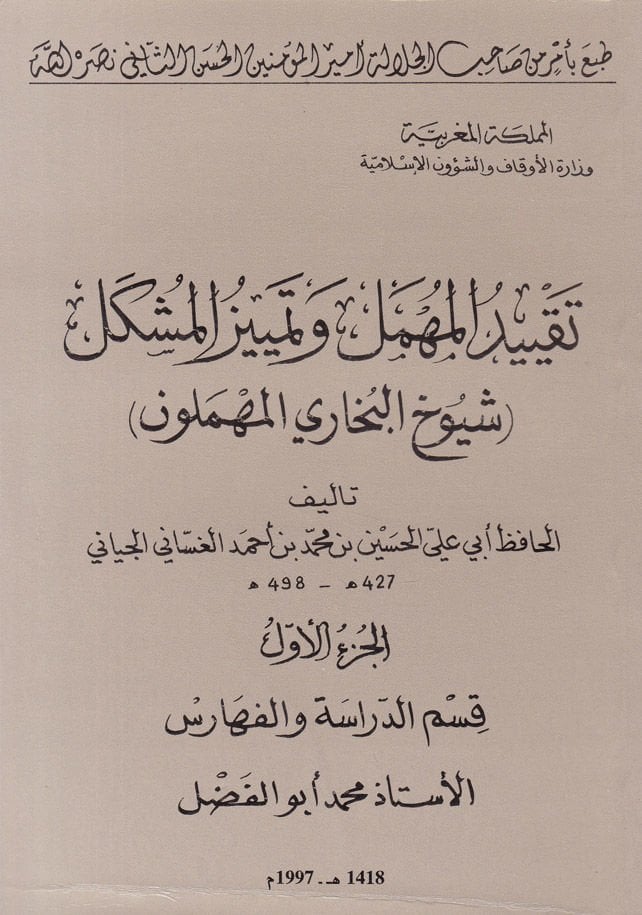 طبع بأمر من صاحب الجلالة أمير المؤمنين الحسن الثاني نصره الله
المملكة المغربية
وزارة الأوقاف والشؤون الإسلامية
تقييد المهمل وتمييز المشكل
(شيوخ البخاري المهملون)
تاليف
الحافظ أبي علي الحسين بن محمد بن أحمد الغساني الجياني
427 هـ - 498 هـ
الجزء الأول
قسم الدراسة والفهارس
الأستاذ محمد أبو الفضل
1418 هـ - 1997م